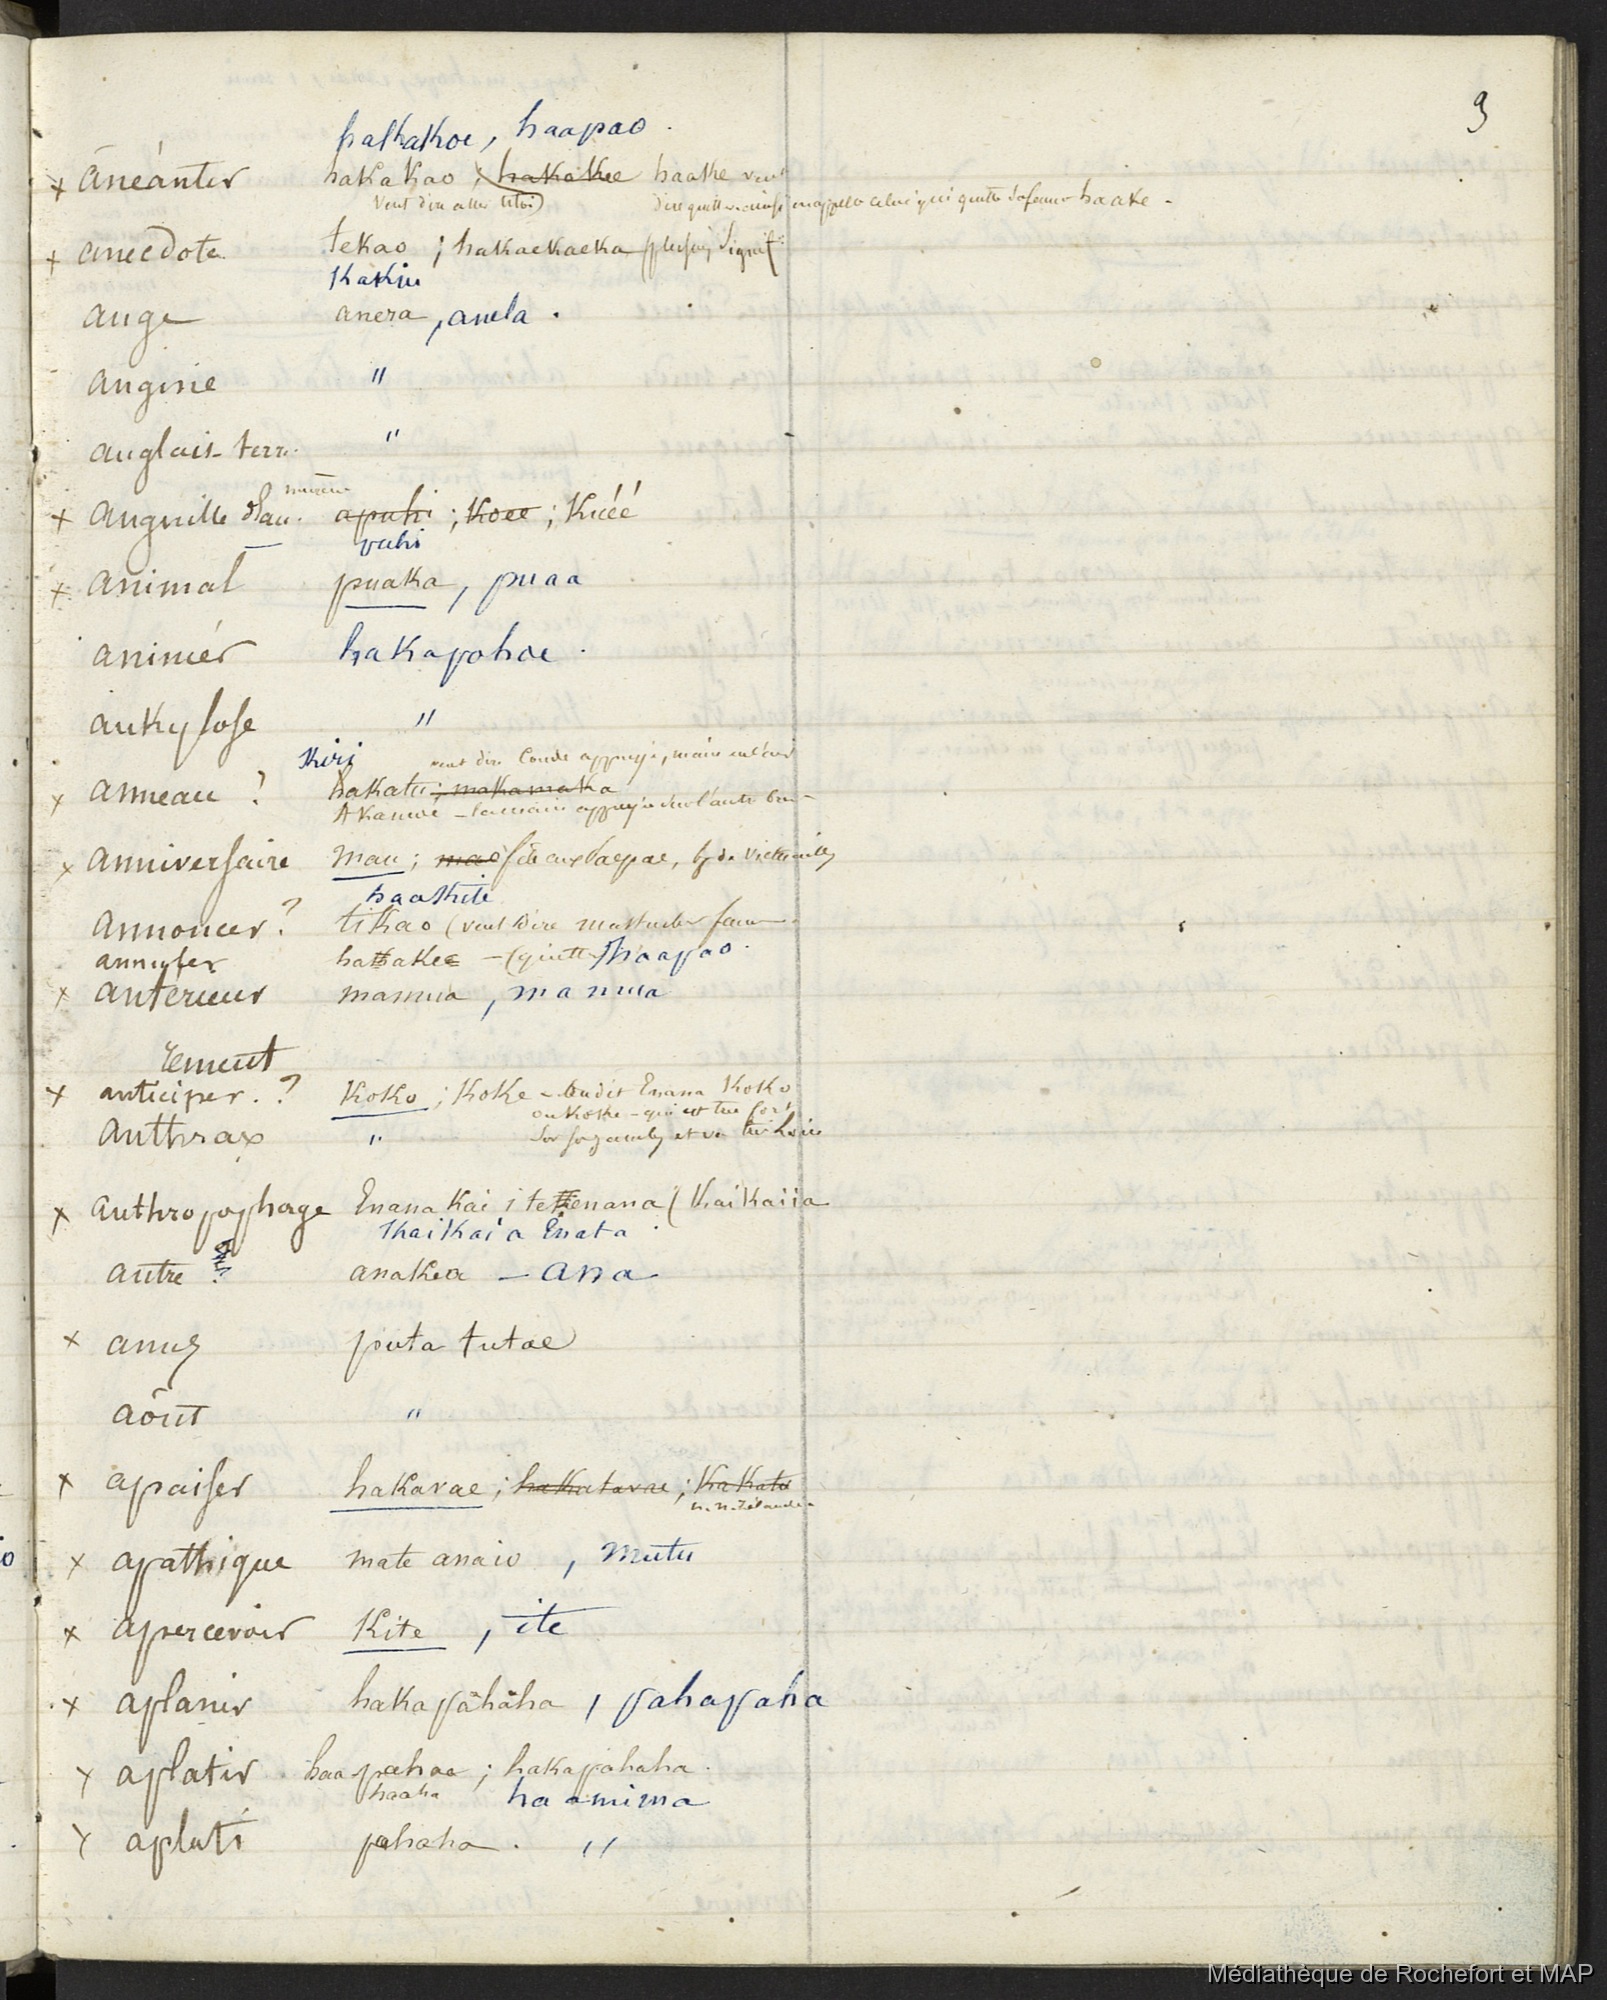 9
hakakoe, haapao.
x anéantir hakakao ; hakakee haake veut
veut dire aller
dire quitter ainsi on appelle celui qui quitte sa femme haake.
x anecdote tekao ; hakaekaeka (plusieurs signif.
Kakiu
ange anera, anela.
angine "
anglais-terre "
murène
x anguille d'eau. apuhi ; Koee ; Kuéé
vuhi
x animal puaka, puaa
animer hakapohoe.
ankylose "
Kiri veut dire coude appuyé, main en l'air
x anneau ? hakatu ; makamaka
la main appuyée sur l'autre bras
x anniversaire mau ; mae fête aux paepae, de victuailles
haakite
annoncer ? tikao (veut dire masturber femme
annuler hakakee - (quitter) haapao.
x antérieur mamua, mamua
rement
x anticiper. ? Koko ; Koke - on dit Enana Koko
ou Koke - qui est très fort
Anthrax " sur ses jambes et va très loin
x anthropophage Enana kai i te enana (Kaikaiia
Kaikai'a Enata.
antre ? anakea - ana
x anus puta tutae
août "
x apaiser hakavae ; hakatavae ; Kakatu
n. n. Zélande
x apathique mate anaio, mutu
x apercevoir Kite, ite
x aplanir hakapâhâha, pahapaha
x aplatir haapahae ; hakapahaha.
haaha haamima
x aplati pahaha. "
Médiathèque de Rochefort et MAP